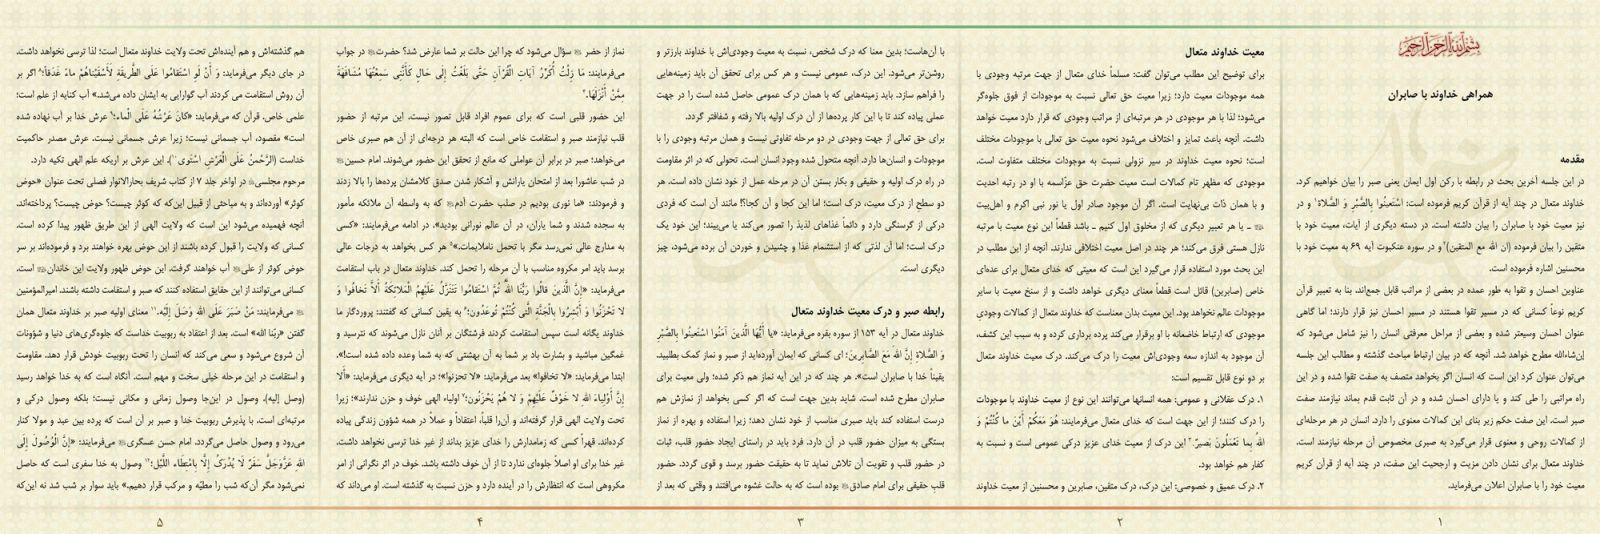 بسم الله الرحمن الرحیم
همراهی خداوند با صابران
مقدمه
در این جلسه آخرین بحث در رابطه با رکن اول ایمان یعنی صبر را بیان خواهیم کرد.
خداوند متعال در چند آیه از قرآن کریم فرموده است: اسْتَعِینُوا بِالصَّبْرِ وَ الصَّلاةِ¹ و در
نیز معیت خود با صابران را بیان داشته است. در دسته دیگری از آیات، معیت خود با
متقین را بیان فرموده (ان الله مع المتقین)² و در سوره عنکبوت آیه ۶۹ به معیت خود با
محسنین اشاره فرموده است.
عناوین احسان و تقوا به طور عمده در بعضی از مراتب قابل جمع‌اند. بنا به تعبیر قرآن
کریم نوعاً کسانی که در مسیر تقوا هستند در مسیر احسان نیز قرار دارند؛ اما گاهی
عنوان احسان وسیعتر شده و بعضی از مراحل معرفتی انسان را نیز شامل می‌شود که
إن‌شاءالله مطرح خواهد شد. آنچه که در بیان ارتباط مباحث گذشته و مطالب این جلسه
می‌توان عنوان کرد این است که انسان اگر بخواهد متصف به صفت تقوا شده و در این
راه مراتبی را طی کند و یا دارای احسان شده و در آن ثابت قدم بماند نیازمند صفت
صبر است. این صفت حکم زیر بنای این کمالات معنوی را دارد. انسان در هر مرحله‌ای
از کمالات روحی و معنوی قرار می‌گیرد به صبری مخصوص آن مرحله نیازمند است.
خداوند متعال برای نشان دادن مزیت و ارجحیت این صفت، در چند آیه از قرآن کریم
معیت خود را با صابران اعلان می‌فرماید.
۱
معیت خداوند متعال
برای توضیح این مطلب می‌توان گفت: مسلماً خدای متعال از جهت مرتبه وجودی با
همه موجودات معیت دارد؛ زیرا معیت حق تعالی نسبت به موجودات از فوق جلوه‌گر
می‌شود؛ لذا با هر موجودی در هر مرتبه‌ای از مراتب وجودی که قرار دارد معیت خواهد
داشت. آنچه باعث تمایز و اختلاف می‌شود نحوه معیت حق تعالی با موجودات مختلف
است؛ نحوه معیت خداوند در سیر نزولی نسبت به موجودات مختلف متفاوت است.
موجودی که مظهر تام کمالات است معیت حضرت حق عزّاسمه با او در رتبه احدیت
و با همان ذات بی‌نهایت است. اگر آن موجود صادر اول یا نور نبی اکرم و اهل‌بیت
ـ یا هر تعبیر دیگری که از مخلوق اول کنیم ـ باشد قطعاً این نوع معیت با مرتبه
نازل هستی فرق می‌کند؛ هر چند در اصل معیت اختلافی ندارند. آنچه از این مطلب در
این بحث مورد استفاده قرار می‌گیرد این است که معیتی که خدای متعال برای عده‌ای
خاص (صابرین) قائل است قطعاً معنای دیگری خواهد داشت و از سنخ معیت با سایر
موجودات عالم نخواهد بود. این معیت بدان معناست که خداوند متعال از کمالات وجودی
موجودی که ارتباط خاضعانه با او برقرار می‌کند پرده برداری کرده و به سبب این کشف،
آن موجود به اندازه سعه وجودی‌اش معیت را درک می‌کند. درک معیت خداوند متعال
بر دو نوع قابل تقسیم است:
۱. درک عقلانی و عمومی: همه انسانها می‌توانند این نوع از معیت خداوند با موجودات
را درک کنند؛ از این جهت است که خدای متعال می‌فرمایند: هُوَ مَعَکُمْ أَیْنَ ما کُنْتُمْ وَ
اللهُ بِما تَعْمَلُونَ بَصیرٌ.³ این درک از معیت خدای عزیز درکی عمومی است و نسبت به
کفار هم خواهد بود.
۲. درک عمیق و خصوصی: این درک، درک متقین، صابرین و محسنین از معیت خداوند
۲
با آن‌هاست؛ بدین معنا که درک شخص، نسبت به معیت وجودی‌اش با خداوند بارزتر و
روشن‌تر می‌شود. این درک، عمومی نیست و هر کس برای تحقق آن باید زمینه‌هایی
را فراهم سازد. باید زمینه‌هایی که با همان درک عمومی حاصل شده است را در جهت
عملی پیاده کند تا با این کار پرده‌ها از آن درک اولیه بالا رفته و شفافتر گردد.
برای حق تعالی از جهت وجودی در دو مرحله تفاوتی نیست و همان مرتبه وجودی را با
موجودات و انسان‌ها دارد. آنچه متحول شده وجود انسان است. تحولی که در اثر مقاومت
در راه درک اولیه و حقیقی و بکار بستن آن در مرحله عمل از خود نشان داده است. هر
دو سطح از درک معیت، درک است؛ اما این کجا و آن کجا؟! مانند آن است که فردی
درکی از گرسنگی دارد و دائماً غذاهای لذیذ را تصور می‌کند یا می‌بیند؛ این خود یک
درک است؛ اما آن لذتی که از استشمام غذا و چشیدن و خوردن آن برده می‌شود، چیز
دیگری است.
رابطه صبر و درک معیت خداوند متعال
خداوند متعال در آیه ۱۵۳ از سوره بقره می‌فرماید: «یا أَیُّهَا الَّذینَ آمَنُوا اسْتَعینُوا بِالصَّبْرِ
وَ الصَّلاةِ إِنَّ اللهَ مَعَ الصَّابِرینَ؛ ای کسانی که ایمان آورده‌اید از صبر و نماز کمک بطلبید.
یقیناً خدا با صابران است». هر چند که در این آیه نماز هم ذکر شده؛ ولی معیت برای
صابران مطرح شده است. شاید بدین جهت است که اگر کسی بخواهد از نمازش هم
درست استفاده کند باید صبری مناسب از خود نشان دهد؛ زیرا استفاده و بهره از نماز
بستگی به میزان حضور قلب در آن دارد. فرد باید در راستای ایجاد حضور قلب، ثبات
در حضور قلب و تقویت آن تلاش نماید تا به حقیقت حضور برسد و قوی گردد. حضور
قلب حقیقی برای امام صادق بوده است که به حالت غشوه می‌افتند و وقتی که بعد از
۳
نماز از حضر سؤال می‌شود که چرا این حالت بر شما عارض شد؟ حضرت در جواب
می‌فرمایند: مَا زِلْتُ أُکَرِّرُ آیَاتِ الْقُرْآنِ حَتَّى بَلَغْتُ إِلَى حَالٍ کَأَنَّنِی سَمِعْتُهَا مُشَافَهَةً
مِمَّنْ أَنْزَلَهَا.⁴
این حضور قلبی است که برای عموم افراد قابل تصور نیست. این مرتبه از حضور
قلب نیازمند صبر و استقامت خاص است که البته هر درجه‌ای از آن هم صبری خاص
می‌خواهد؛ صبر در برابر آن عواملی که مانع از تحقق این حضور می‌شوند. امام حسین
در شب عاشورا بعد از امتحان یارانش و آشکار شدن صدق کلامشان پرده‌ها را بالا زدند
و فرمودند: «ما نوری بودیم در صلب حضرت آدم که به واسطه آن ملائکه مأمور
به سجده شدند و شما یاران، در آن عالم نورانی بودید». در ادامه می‌فرمایند: «کسی
به مدارج عالی نمی‌رسد مگر با تحمل ناملایمات.»⁵ هر کس بخواهد به درجات عالی
برسد باید امر مکروه مناسب با آن مرحله را تحمل کند. خداوند متعال در باب استقامت
می‌فرماید: «إِنَّ الَّذینَ قالُوا رَبُّنَا اللهُ ثُمَّ اسْتَقامُوا تَتَنَزَّلُ عَلَیْهِمُ الْمَلائِکَةُ أَلاَّ تَخافُوا وَ
لا تَحْزَنُوا وَ أَبْشِرُوا بِالْجَنَّةِ الَّتی کُنْتُمْ تُوعَدُونَ؛⁶ به یقین کسانی که گفتند: پروردگار ما
خداوند یگانه است سپس استقامت کردند فرشتگان بر آنان نازل می‌شوند که نترسید و
غمگین مباشید و بشارت باد بر شما به آن بهشتی که به شما وعده داده شده است!».
ابتدا می‌فرماید: «لا تخافوا» بعد می‌فرماید: «لا تحزنوا»؛ در آیه دیگری می‌فرماید: «أَلا
إِنَّ أَوْلِیاءَ اللهِ لا خَوْفٌ عَلَیْهِمْ وَ لا هُمْ یَحْزَنُونَ؛⁷ اولیاء الهی خوف و حزن ندارند»؛ زیرا
تحت ولایت الهی قرار گرفته‌اند و آن‌را قلباً، اعتقاداً و عملاً در همه شؤون زندگی پیاده
کرده‌اند. قهراً کسی که زمامدارش را خدای عزیز بداند از غیر خدا ترسی نخواهد داشت.
غیر خدا برای او اصلاً جلوه‌ای ندارد تا از آن خوف داشته باشد. خوف در اثر نگرانی از امر
مکروهی است که انتظارش را در آینده دارد و حزن نسبت به گذشته است. او می‌داند که
۴
هم گذشته‌اش و هم آینده‌اش تحت ولایت خداوند متعال است؛ لذا ترسی نخواهد داشت.
در جای دیگر می‌فرماید: وَ أَنْ لَوِ اسْتَقامُوا عَلَى الطَّریقَةِ لَأَسْقَیْناهُمْ ماءً غَدَقاً؛⁸ اگر بر
آن روش استقامت می کردند آب گوارایی به ایشان داده می‌شد.» آب کنایه از علم است؛
علمی خاص، قرآن که می‌فرماید: «کانَ عَرْشُهُ عَلَى الْماء؛⁹ عرش خدا بر آب نهاده شده
است» مقصود، آب جسمانی نیست؛ زیرا عرش جسمانی نیست. عرش مصدر حاکمیت
خداست (الرَّحْمنُ عَلَى الْعَرْشِ اسْتَوى¹⁰). این عرش بر اریکه علم الهی تکیه دارد.
مرحوم مجلسی در اواخر جلد ۷ از کتاب شریف بحارالانوار فصلی تحت عنوان «حوض
کوثر» آورده‌اند و به مباحثی از قبیل این‌که که کوثر چیست؟ حوض چیست؟ پرداخته‌اند.
آنچه فهمیده می‌شود این است که ولایت الهی از این طریق ظهور پیدا کرده است.
کسانی که ولایت را قبول کرده باشند از این حوض بهره خواهند برد و فرموده‌اند بر سر
حوض کوثر از علی آب خواهند گرفت. این حوض ظهور ولایت این خاندان است.
کسانی می‌توانند از این حقایق استفاده کنند که صبر و استقامت داشته باشند. امیرالمؤمنین
می‌فرمایند: مَنْ صَبَرَ عَلَى اللهِ وَصَلَ إِلَیْه.¹¹ معنای اولیه صبر بر خداوند متعال همان
گفتن «ربّنا الله» است. بعد از اعتقاد به ربوبیت خداست که جلوه‌گری‌های دنیا و شؤونات
آن شروع می‌شود و سعی می‌کند که انسان را تحت ربوبیت خودش قرار دهد. مقاومت
و استقامت در این مرحله خیلی سخت و مهم است. آنگاه است که به خدا خواهد رسید
(وصل إلیه). وصول در این‌جا وصول زمانی و مکانی نیست؛ بلکه وصول درکی و
مرتبه‌ای است. با پذیرش ربوبیت خدا و صبر بر آن است که پرده بین عبد و مولا کنار
می‌رود و وصول حاصل می‌گردد. امام حسن عسگری می‌فرمایند: «إِنَّ الْوُصُولَ إِلَى
اللهِ عَزَّوَجَلَّ سَفَرٌ لَا یُدْرَکُ إِلَّا بِامْتِطَاءِ اللَّیْلِ؛¹² وصول به خدا سفری است که حاصل
نمی‌شود مگر آن‌که شب را مطیّه و مرکب قرار دهیم.» باید سوار بر شب شد نه این‌که
۵